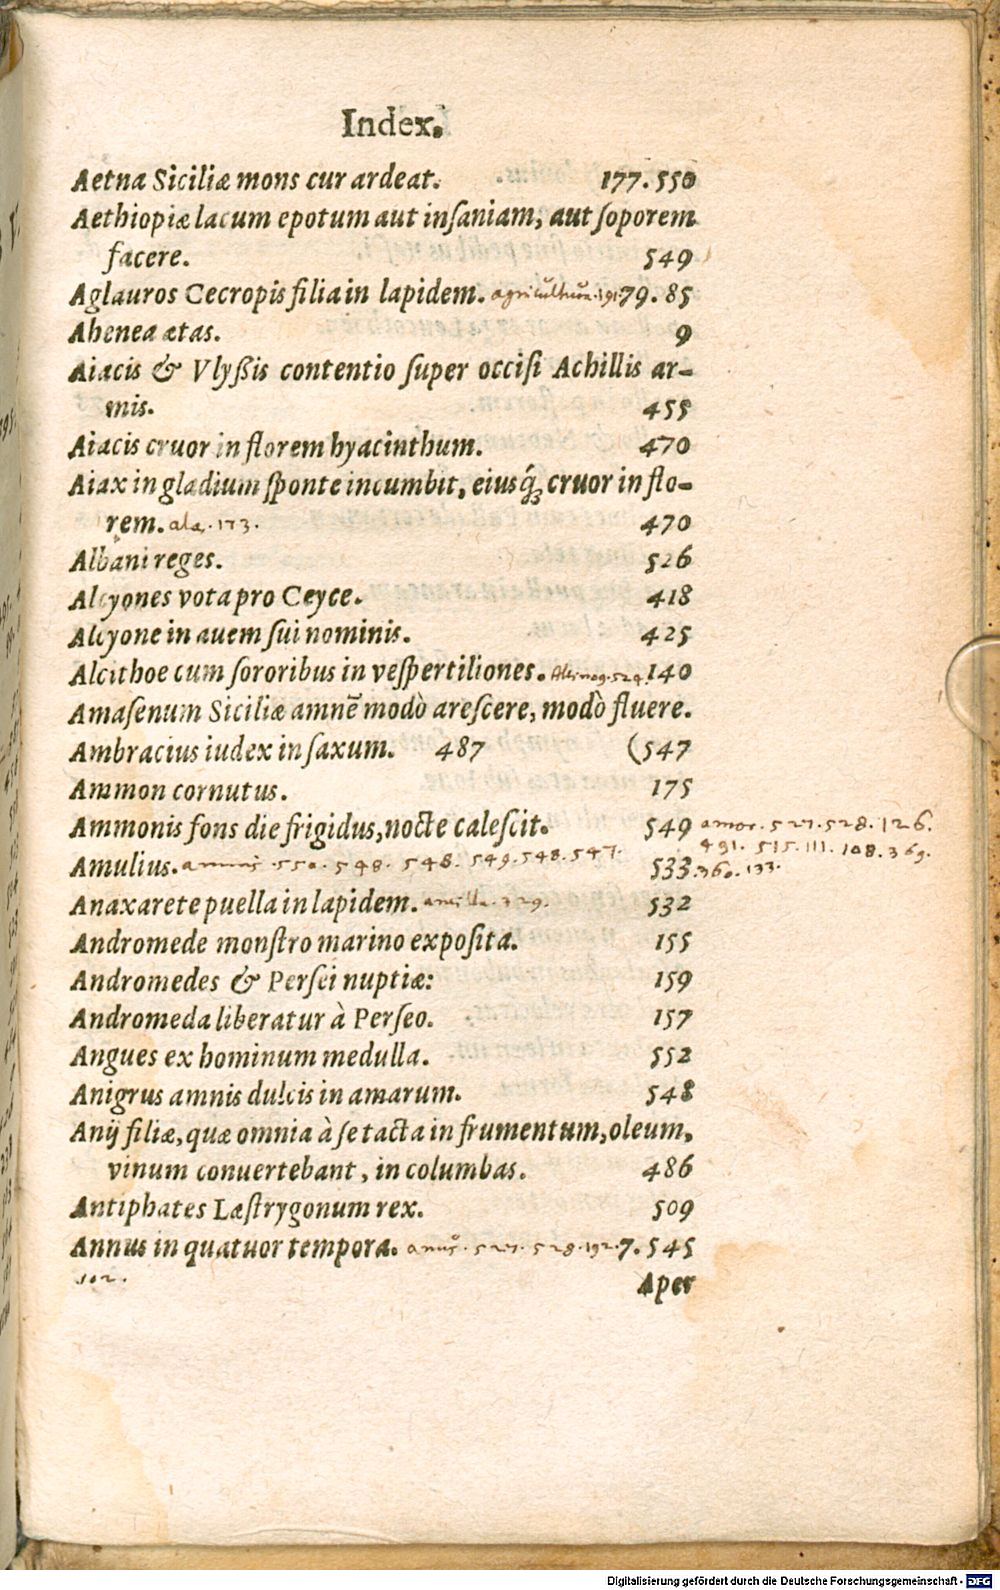 Index.
Aetna Siciliæ mons cur ardeat. 177. 550
Aethiopiæ lacum epotum aut inſaniam, aut ſoporem
facere. 549
Aglauros Cecropis filia in lapidem. agricultura. 191. 79. 85
Ahenea ætas. 9
Aiacis & Vlyßis contentio ſuper occiſi Achillis ar-
mis. 455
Aiacis cruor in florem hyacinthum. 470
Aiax in gladium ſponte incumbit, eiusq́; cruor in flo-
rem. ala. 173. 470
Albani reges. 526
Alcyones vota pro Ceyce. 418
Alcyone in auem ſui nominis. 425
Alcithoe cum ſororibus in veſpertiliones. 524. 140
Amaſenum Siciliæ amnē modò areſcere, modò fluere.
Ambracius iudex in ſaxum. 487 (547
Ammon cornutus. 175
Ammonis fons die frigidus, nocte caleſcit. 549 amor. 527. 528. 126.
491. 515. 111. 108. 369.
Amulius. amnis. 550. 548. 548. 549. 548. 547. 533. 360. 133.
Anaxarete puella in lapidem. ancilla. 329. 532
Andromede monſtro marino expoſita. 155
Andromedes & Perſei nuptiæ: 159
Andromeda liberatur à Perſeo. 157
Angues ex hominum medulla. 552
Anigrus amnis dulcis in amarum. 548
Anij filiæ, quæ omnia à ſe tacta in frumentum, oleum,
vinum conuertebant, in columbas. 486
Antiphates Læſtrygonum rex. 509
Annus in quatuor tempora. 527. 528. 192. 7. 545
102. Aper
Digitalisierung gefördert durch die Deutsche Forschungsgemeinschaft - DFG